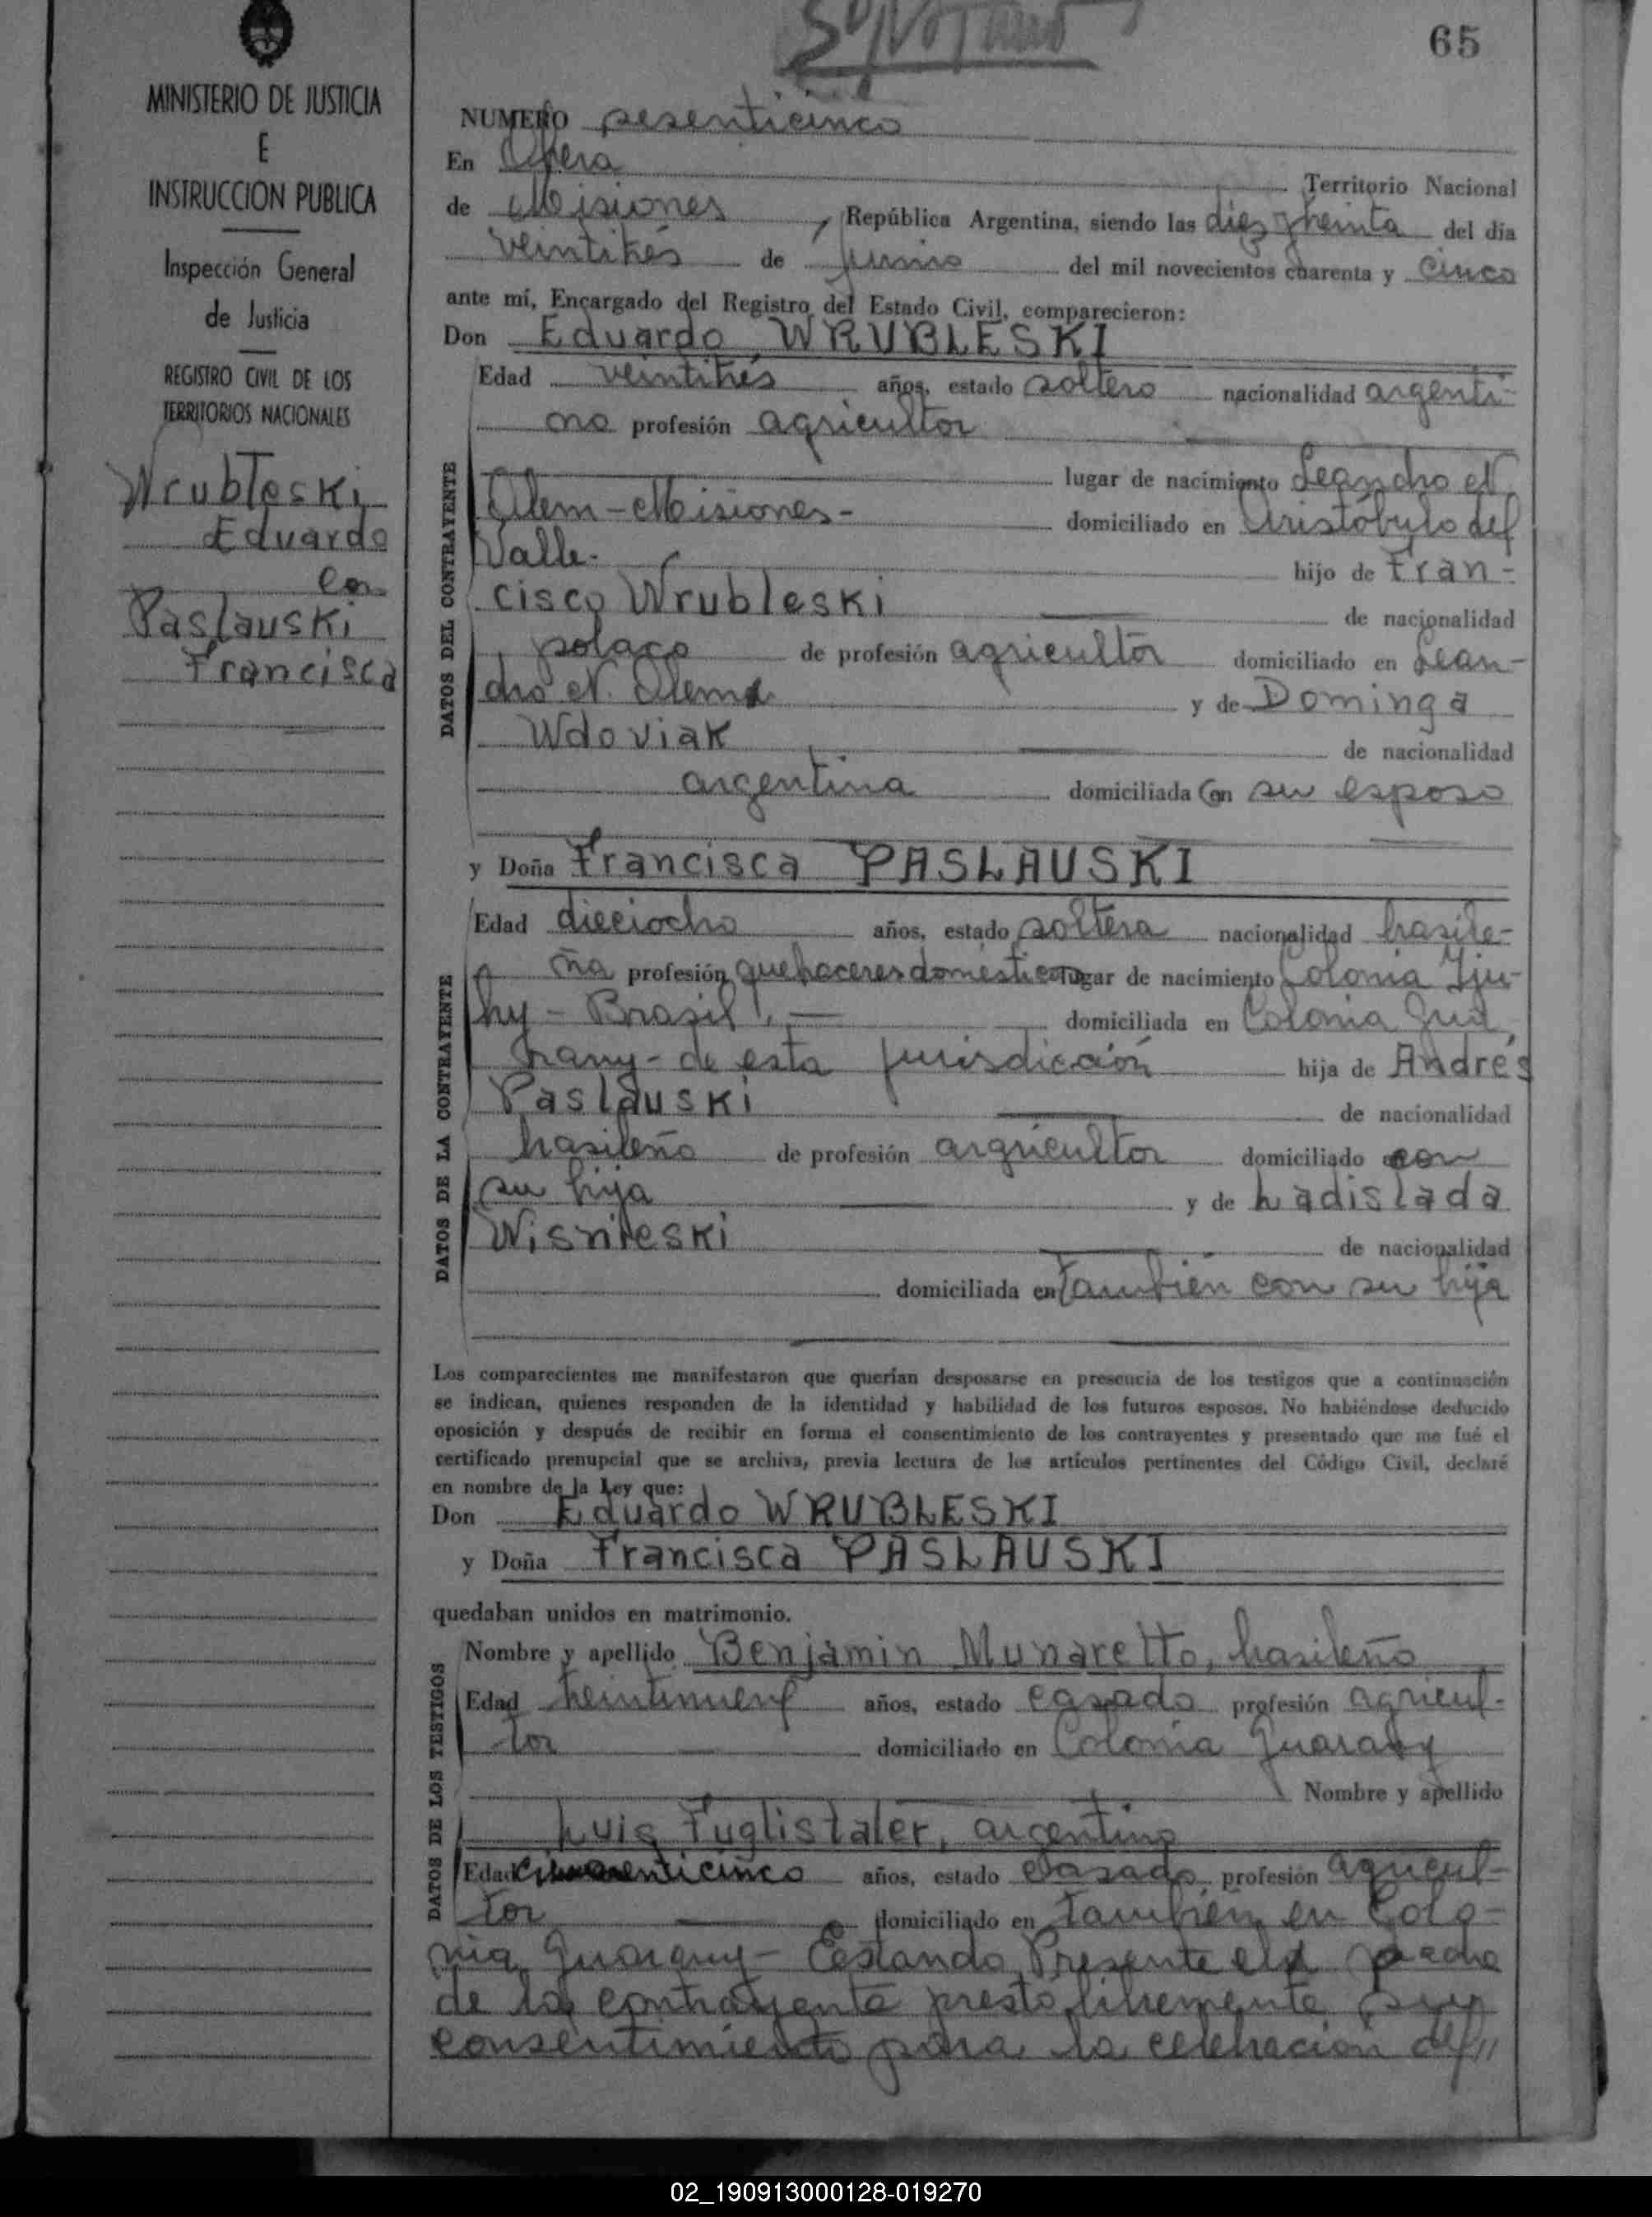 65
MINISTERIO DE JUSTICIA
E
INSTRUCCION PUBLICA
Inspección General
de Justicia
REGISTRO CIVIL DE LOS
TERRITORIOS NACIONALES
Wrubleski
Eduardo
con
Paslauski
Francisca
NUMERO sesenticinco
En Obera Territorio Nacional
de Misiones, República Argentina, siendo las diez y treinta del día
veintitrés de junio del mil novecientos cuarenta y cinco
ante mí, Encargado del Registro del Estado Civil, comparecieron:
Don Eduardo WRUBLESKI
DATOS DEL CONTRAYENTE
Edad veintitrés años, estado soltero nacionalidad argenti-
no profesión agricultor
lugar de nacimiento Leandro N.
Alem-Misiones- domiciliado en Aristóbulo del
Valle- hijo de Fran-
cisco Wrubleski de nacionalidad
polaco de profesión agricultor domiciliado en Lean-
dro N. Alem y de Dominga
Wdoviak de nacionalidad
argentina domiciliada con su esposo
y Doña Francisca PASLAUSKI
DATOS DE LA CONTRAYENTE
Edad dieciocho años, estado soltera nacionalidad brasile-
ña profesión quehaceres domésticos lugar de nacimiento Colonia Yju-
hy - Brasil.- domiciliada en Colonia Gua
rany- de esta jurisdicción hija de Andrés
Paslauski de nacionalidad
brasileño de profesión argricultor domiciliado con
su hija y de Ladislada
Wisnieski de nacionalidad
domiciliada en también con su hija
Los comparecientes me manifestaron que querían desposarse en presencia de los testigos que a continuación
se indican, quienes responden de la identidad y habilidad de los futuros esposos. No habiéndose deducido
oposición y después de recibir en forma el consentimiento de los contrayentes y presentado que me fué el
certificado prenupcial que se archiva, previa lectura de los artículos pertinentes del Código Civil, declaré
en nombre de la Ley que:
Don Eduardo WRUBLESKI
y Doña Francisca PASLAUSKI
quedaban unidos en matrimonio.
DATOS DE LOS TESTIGOS
Nombre y apellido Benjamin Munaretto, brasileño
Edad años, estado casado profesión agricul-
tor domiciliado en Colonia Guarany
Nombre y apellido
Luis Fuglistaler, argentino
Edad años, estado casado profesión agricul-
tor domiciliado en también en Colo-
nia Guarany- Estando Presente el padre
de la contrayente prestó libremente su
consentimiento para la celebración del//
02_190913000128-019270